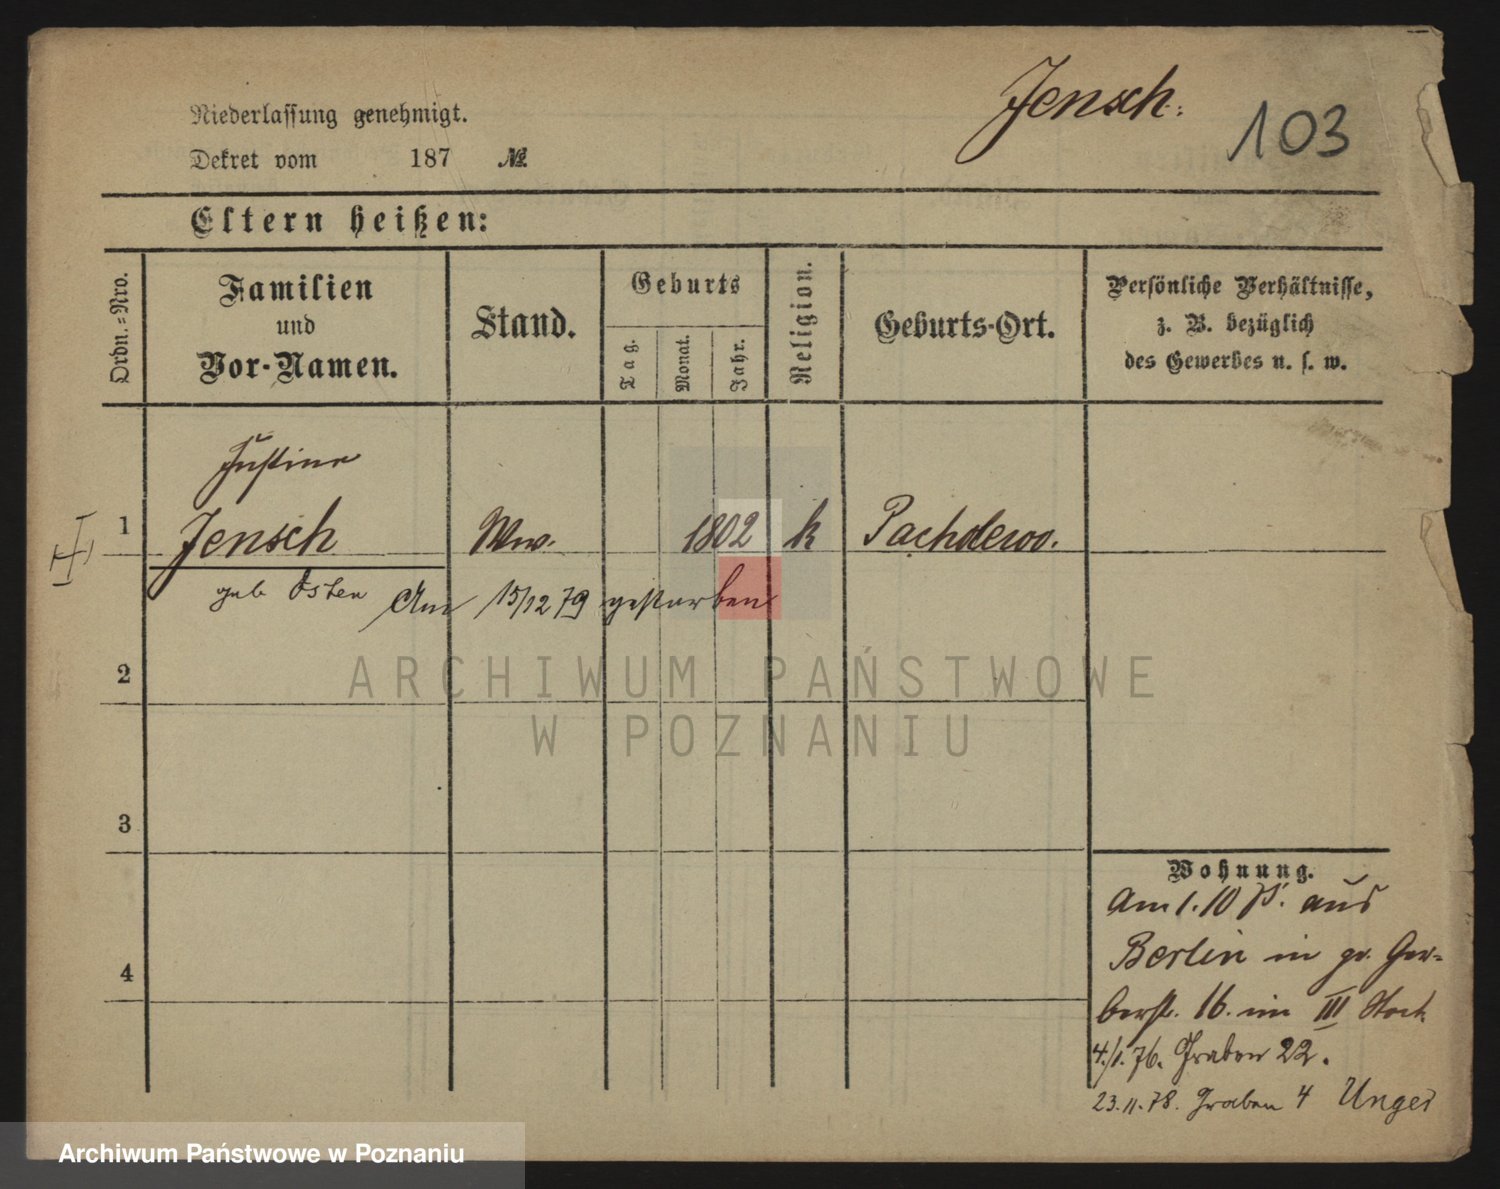 Jensch.
103
Niederlassung genehmigt.
Dekret vom 187 №
Eltern heißen:
Ordn.=Nro.
Familien
und
Vor-Namen.
Stand.
Geburts
Tag.
Monat.
Jahr.
Religion.
Geburts-Ort.
Persönliche Verhältnisse,
z. B. bezüglich
des Gewerbes u. s. w.
Justine
1 Jensch Ww. 1802 k
geb Osten Am 15/12 79 gestorben
2
3
4
Wohnung.
Am 1. 10 75. aus
Berlin in gr. Ger=
berst. 16. im III Stock
4./1. 76. Graben 22.
23.11.78. Graben 4 Unger
ARCHIWUM PAŃSTWOWE
W POZNANIU
Archiwum Państwowe w Poznaniu